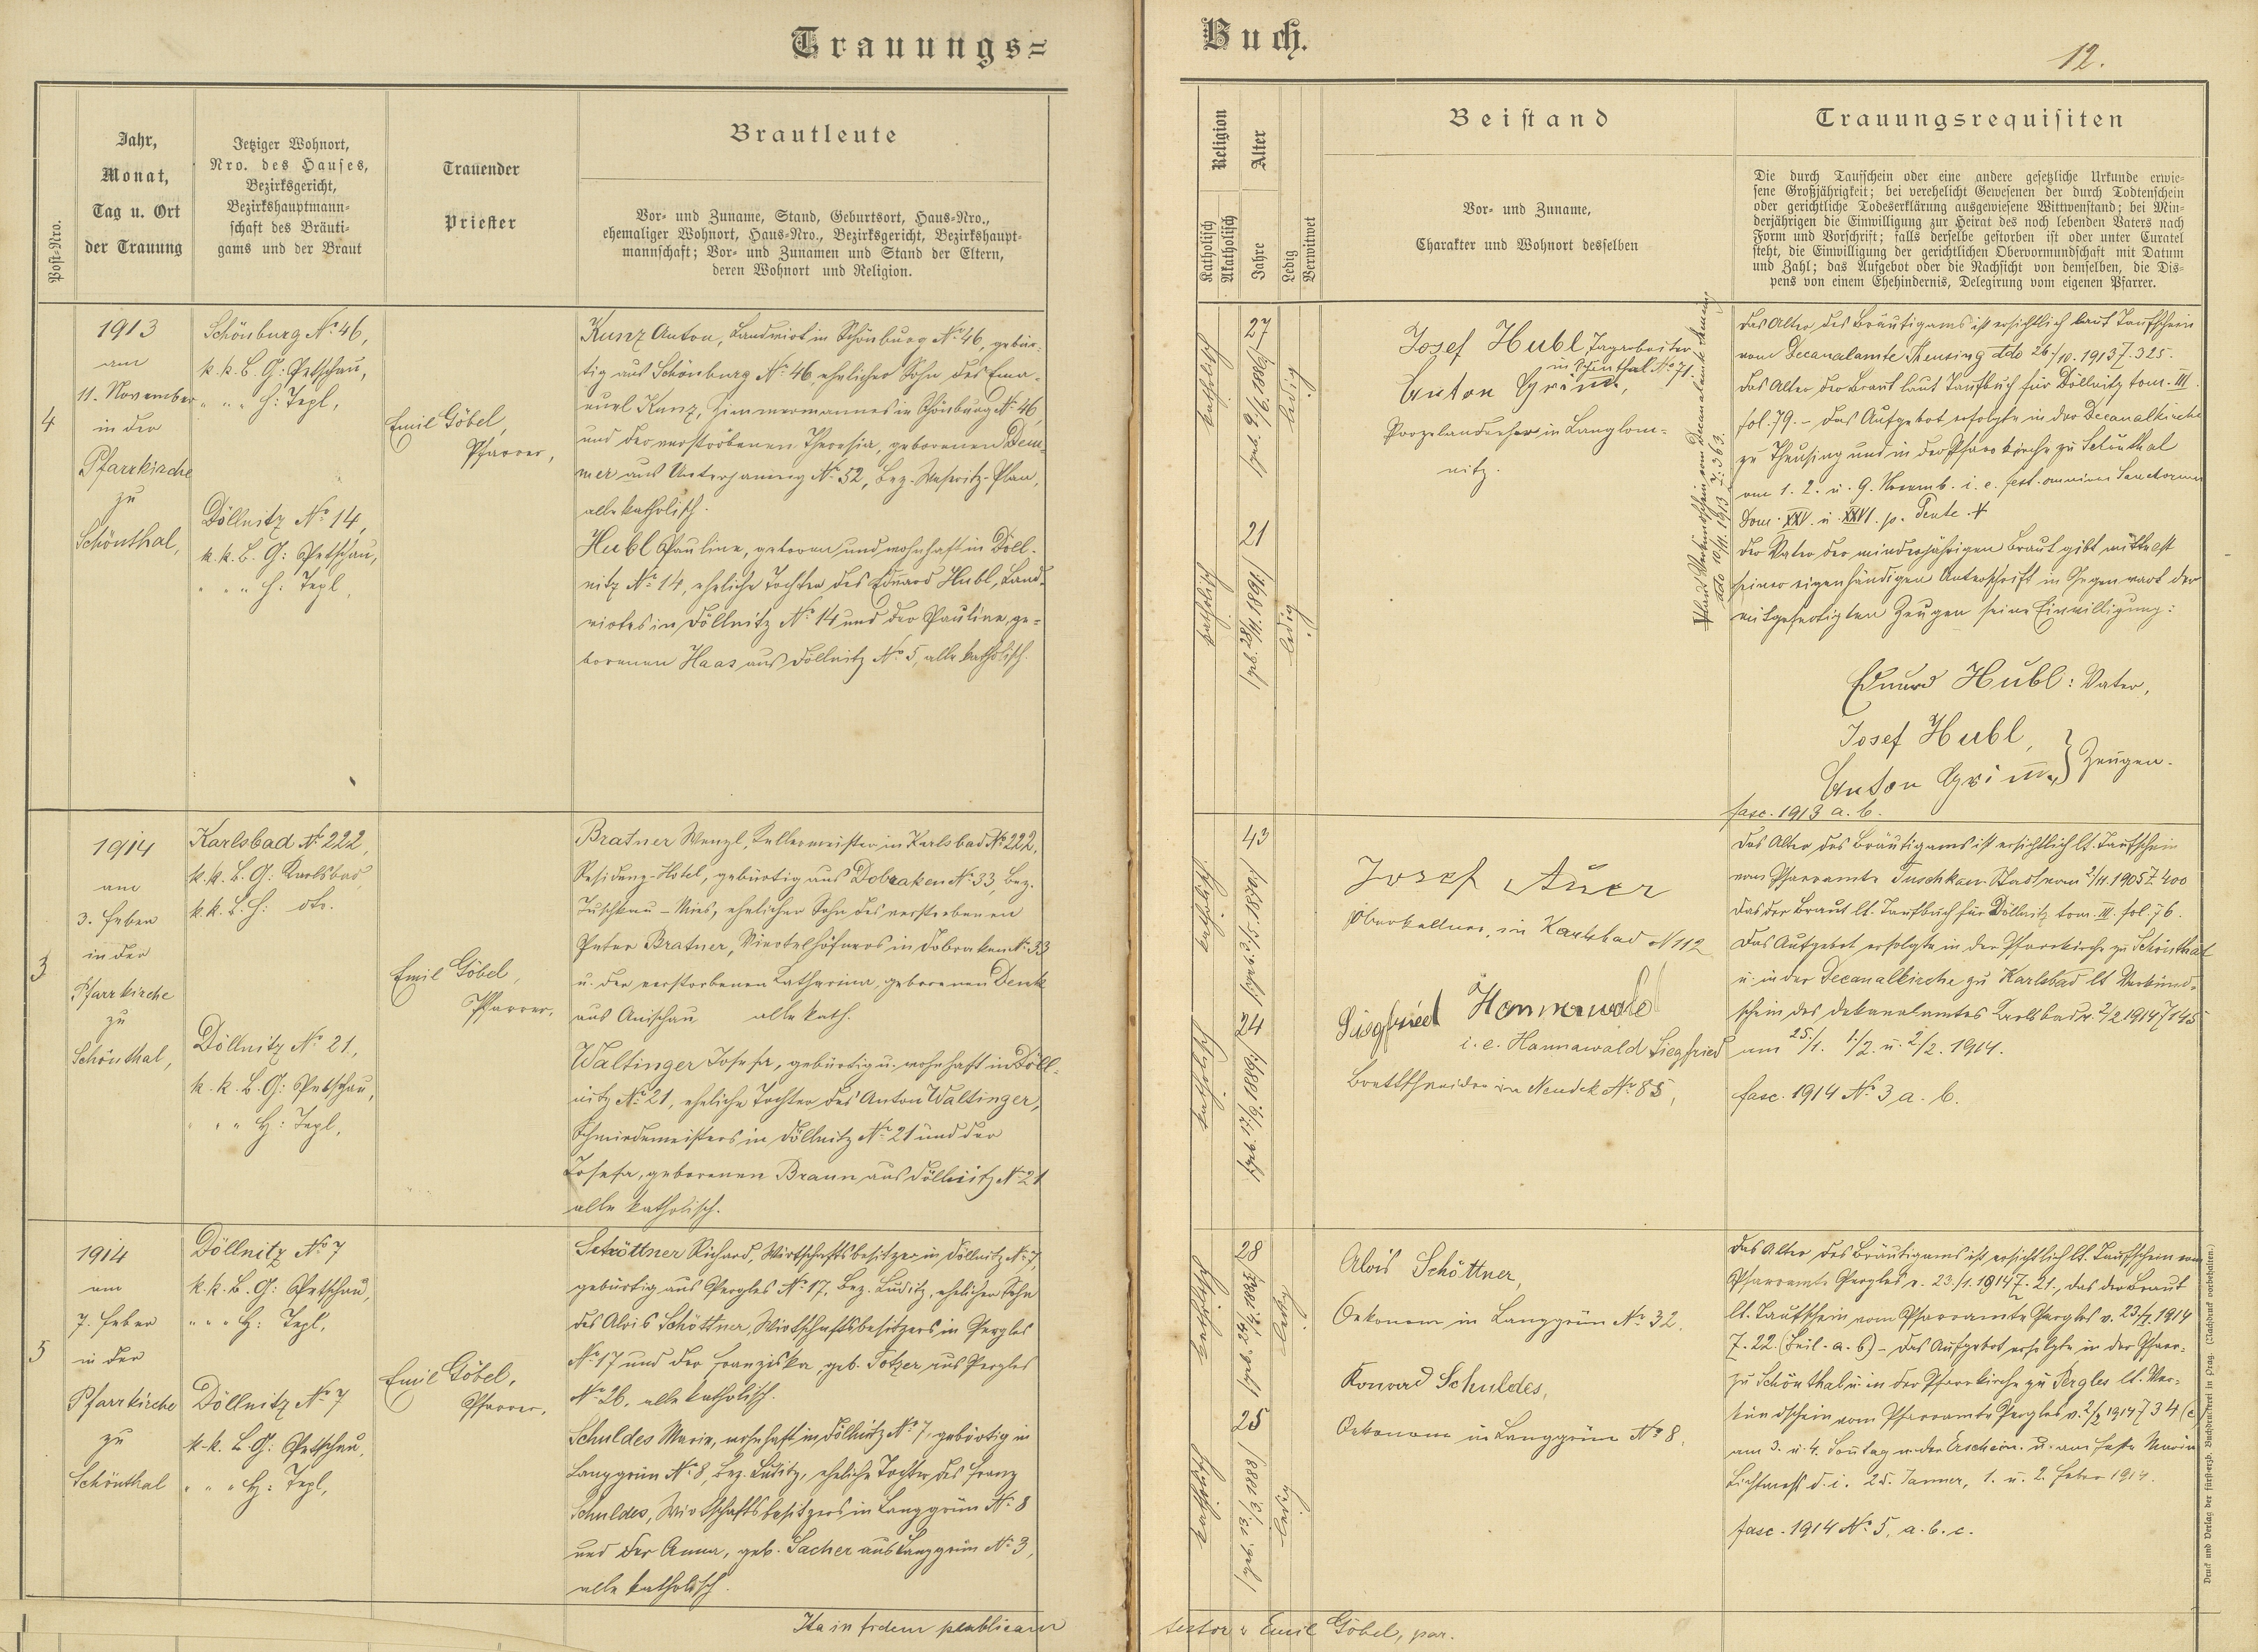 Trauungs=
Buch.
12.
Post-Nro.
Jahr,
Monat,
Tag u. Ort
der Trauung
Jetziger Wohnort,
Nro. des Hauses,
Bezirksgericht,
Bezirkshauptmann-
schaft des Bräuti-
gams und der Braut
Trauender
Priester
Brautleute
Vor- und Zuname, Stand, Geburtsort, Haus-Nro.,
ehemaliger Wohnort, Haus-Nro., Bezirksgericht, Bezirkshaupt-
mannschaft; Vor- und Zunamen und Stand der Eltern,
deren Wohnort und Religion.
Religion
Katholisch
Akatholisch
Alter
Jahre
Ledig
Verwitwet
Beistand
Vor- und Zuname,
Charakter und Wohnort desselben
Trauungsrequisiten
Die durch Taufschein oder eine andere gesetzliche Urkunde erwie-
sene Großjährigkeit; bei verehelicht Gewesenen der durch Todtenschein
oder gerichtliche Todeserklärung ausgewiesene Wittwenstand; bei Min-
derjährigen die Einwilligung zur Heirat des noch lebenden Vaters nach
Form und Vorschrift; falls derselbe gestorben ist oder unter Curatel
steht, die Einwilligung der gerichtlichen Obervormundschaft mit Datum
und Zahl; das Aufgebot oder die Nachsicht von demselben, die Dis-
pens von einem Ehehindernis, Delegirung vom eigenen Pfarrer.
4
1913
am
11. November
in der
Pfarrkirche
zu
Schönthal,
Schönburg No 46,
k.k. B. G: Petschau,
" " " H: Tepl,
Döllnitz No 14,
k.k. B. G: Petschau,
" " " H: Tepl,
Emil Göbel,
Pfarrer,
Kunz Anton, Landwirt in Schönburg No 46, gebür-
tig aus Schönburg No 46, ehelicher Sohn des Ema-
nuel Kunz, Zimmermannes in Schönburg No 46
und der verstorbenen Theresia, geborenen Dem-
mer aus Unterjamnig No 52, Bez. Weseritz-Plan,
alle katholisch.
Hubl Pauline, geboren und wohnhaft in Döll-
nitz No 14, eheliche Tochter des Eduard Hubl, Land-
wirtes in Döllnitz No 14 und der Pauline, ge-
borenen Haas aus Döllnitz No 5, alle katholisch.
katholisch
27
ledig
katholisch
21
/geb. 28/11. 1891/
ledig
Josef Hubl, Tagarbeiter
in Schönthal No 71.
Anton Grimm,
Porzelandreher in Langlam-
nitz.
Das Alter des Bräutigams ist ersichtlich laut Taufschein
vom Decanalamte Theusing ddo 26./10. 1913 Z. 325.
Das Alter der Braut laut Taufbuch für Döllnitz tom. III
fol. 79. – Das Aufgebot erfolgte in der Decanalkirche
zu Theusing und in der Pfarrkirche zu Schönthal
am 1. 2. u. 9. Novemb. i. e. fest. omnium Sanctorum
Dom. XXV. u. XXVI. p. Pente. +
Der Vater der minderjährigen Braut gibt mittelst
seiner eigenhändigen Unterschrift in Gegenwart der
mitgefertigten Zeugen seine Einwilligung:
Eduard Hubl: Vater,
Josef Hubl,
Anton Grimm, } Zeugen.
fasc. 1913 a. b.
+ laut Verkündschein vom Decanalamte Theusing
ddo 10/11. 1913 Z. 363.
3
1914
am
3. Feber
in der
Pfarrkirche
zu
Schönthal,
Karlsbad No 222,
k.k. B. G: Karlsbad,
k.k. B. H: dto.
Döllnitz No 21,
k.k. B. G: Petschau,
" " H: Tepl,
Emil Göbel,
Pfarrer,
Bratner Wenzl, Kellermeister in Karlsbad No 222,
Residenz-Hotel, gebürtig aus Dobraken No 33, Bez.
Tuschkau – Mies, ehelicher Sohn des verstorbenen
Peter Bratner, Viertelhöfners in Dobraken No 33
u. der verstorbenen Katharina, geborenen Denk
aus Anischau alle kath.
Waltinger Josefa, gebürtig u. wohnhaft in Döll-
nitz No 21, eheliche Tochter des Anton Waltinger,
Schmiedemeisters in Döllnitz No 21 und der
Josefa, geborenen Braun aus Döllnitz No 21
alle katholisch.
katholisch
43
katholisch
24
Josef Auer
Oberkellner, in Karlsbad N 112
Siegfried Hannawald
i. e. Hannawald Siegfried
Brettschneider in Neudek No 85,
Das Alter des Bräutigams ist ersichtlich lt. Taufschein
vom Pfarramte Tuschkau-Stadt vom 2/11. 1905 Z. 400
das der Braut lt. Taufbuch für Döllnitz tom. III. fol. 76.
Das Aufgebot erfolgte in der Pfarrkirche zu Schönthal
u. in der Decanalkirche zu Karlsbad lt Verkünd-
schein des Dekanalamtes Karlsbad v. 2/2 1914 Z 145
am 25./1. 1./2. u. 2/2. 1914.
fasc. 1914 No 3, a. b.
5
1914
am
7. Feber
in der
Pfarrkirche
zu
Schönthal
Döllnitz No 7
k.k. B. G: Petschau,
" " " H: Tepl,
Döllnitz No 7
k.k. B. G: Petschau,
" " " H: Tepl,
Emil Göbel,
Pfarrer,
Schöttner Richard, Wirtschaftsbesitzer in Döllnitz No 7,
gebürtig aus Pergles No 17, Bez. Luditz, ehelicher Sohn
des Alois Schöttner, Wirtschaftsbesitzers in Pergles
No 17 und der Franziska, geb. Totzer aus Pergles
No 26, alle katholisch.
Schuldes Marie, wohnhaft in Döllnitz No 7, gebürtig in
Langgrün No 8, Bez. Luditz, eheliche Tochter des Franz
Schuldes, Wirtschaftsbesitzers in Langgrün No 8
und der Anna, geb. Sacher aus Langgrün No 3,
alle katholisch.
katholisch
28
ledig
katholisch
25
ledig
Alois Schöttner,
Oekonom in Langgrün No 32.
Konrad Schuldes,
Oekonom in Langgrün No 8,
Das Alter des Bräutigams ist ersichtlich lt. Taufschein vom
Pfarramte Pergles v. 23./1. 1914 Z. 21., das der Braut
lt. Taufschein vom Pfarramte Pergles v. 23/1. 1914
Z. 22. (Beil. a. b) – Das Aufgebot erfolgte in der Pfarr-
zu Schönthal u. in der Pfarrkirche zu Pergles lt. Ver-
kündschein vom Pfarramte Pergles v. 2/2 1914 Z 34 (c)
am 3. u. 4. Sonntag n. der Erschein. u. am Feste Maria
Lichtmeß d. i. 25. Jänner, 1. u. 2. Feber 1914.
fasc. 1914 No 5, a. b. c.
Ita in fidem publicam
testor: Emil Göbel, par.
Druck und Verlag der fürsterzb. Buchdruckerei in Prag. (Nachdruck vorbehalten.)